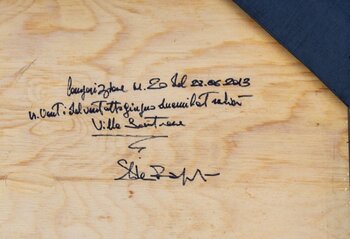 Composizione N. 20 del 28.06.2013
n. Venti del ventotto giugno duemilatredici
Villa